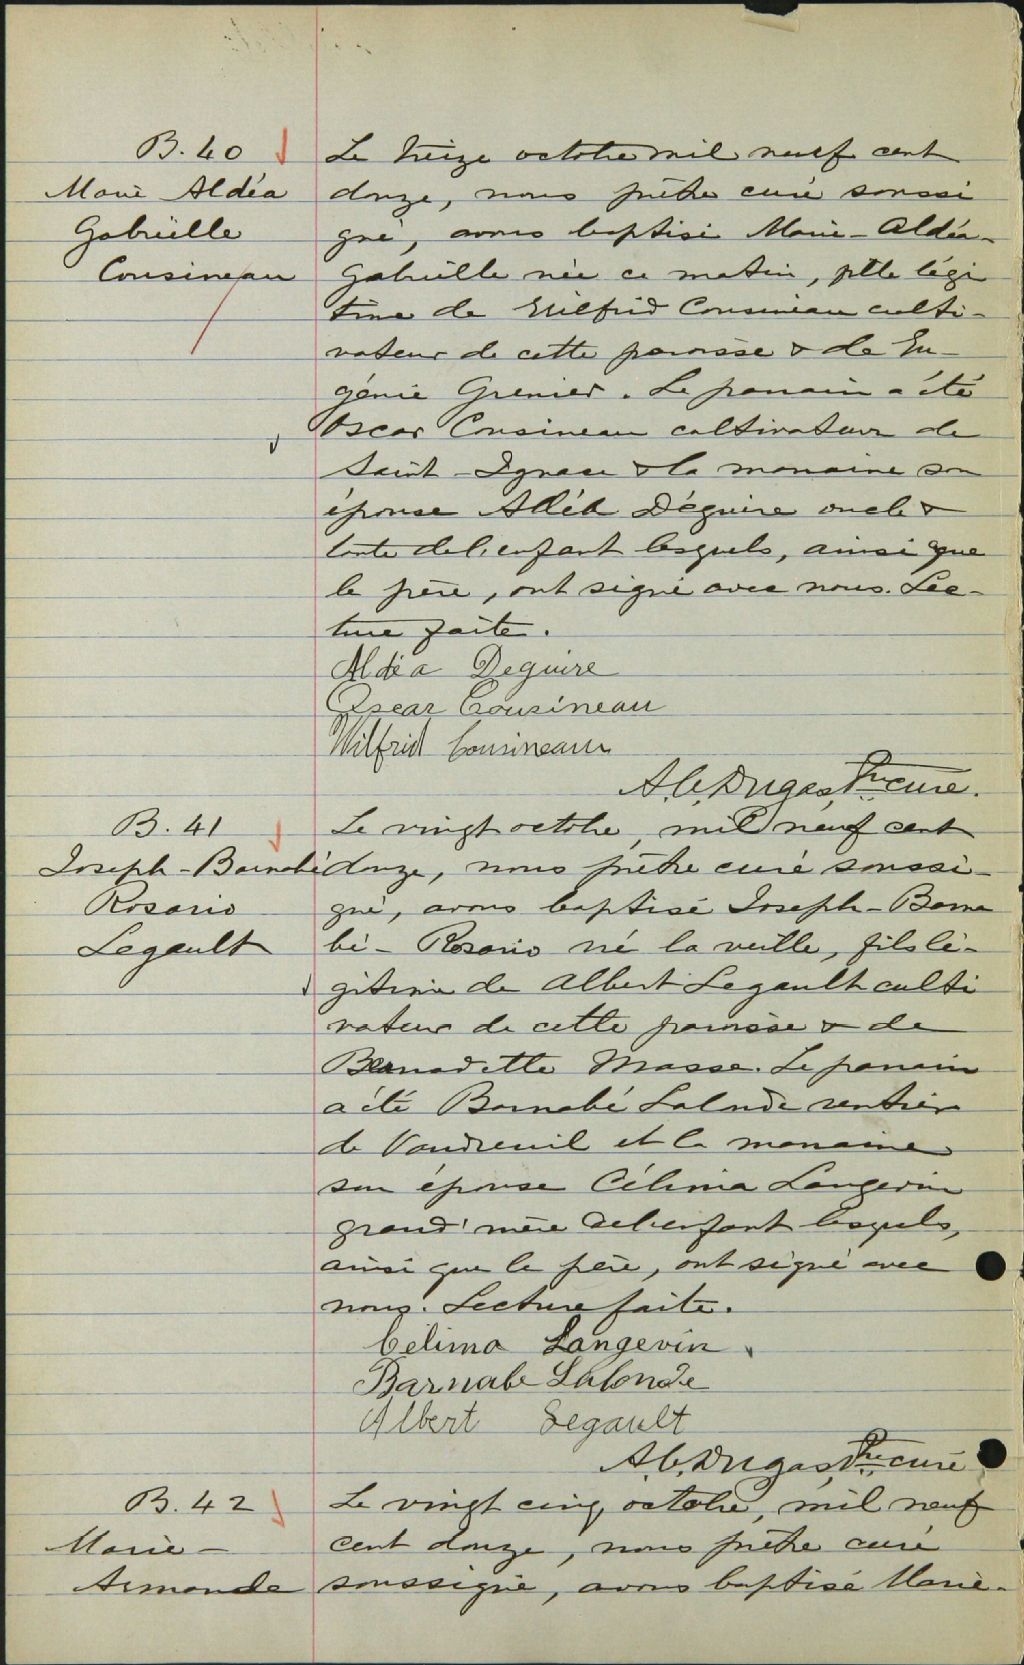 B. 40
Marie Aldéa
Gabrielle
Cousineau
Le treize octobre mil neuf cent
douze, nous prêtre curé soussi
gné, avons baptisé Marie-Aldéa-
Gabrielle née ce matin, fille légi
time de Wilfrid Cousineau culti-
vateur de cette paroisse & de Eu-
génie Grenier. Le parrain a été
Oscar Cousineau cultivateur de
Saint-Ignace & la marraine son
épouse Aldéa Déguire oncle &
tante de l'enfant lesquels, ainsi que
le père, ont signé avec nous. Lec-
ture faite.
Aldéa Deguire
Oscar Cousineau
Wilfrid Cousineau
A.C. Dugas, Ptre curé.
B. 41
Joseph-Barnabé
Rosario
Legault
Le vingt octobre, mil neuf cent
douze, nous prêtre curé soussi-
gné, avons baptisé Joseph-Barna
bé-Rosario né la veille, fils lé-
gitime de Albert Legault culti
vateur de cette paroisse & de
Bernadette Masse. Le parrain
a été Barnabé Lalonde rentier
de Vaudreuil et la marraine
son épouse Célima Langevin
grand'mère de l'enfant lesquels,
ainsi que le père, ont signé avec
nous. Lecture faite.
Célima Langevin
Barnabe Lalonde
Albert Legault
A.C. Dugas, Ptre curé
B. 42
Marie-
Armande
Le vingt cinq octobre, mil neuf
cent douze, nous prêtre curé
soussigné, avons baptisé Marie-